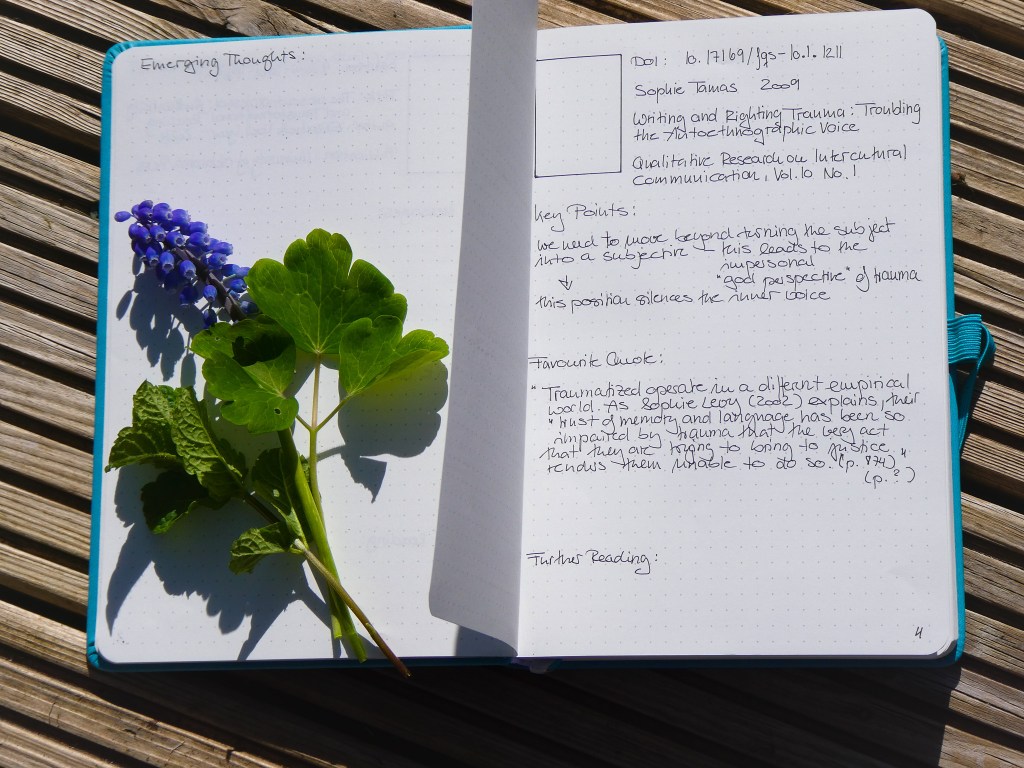 Emerging Thoughts:
DOI: 10.17169/fqs-10.1.1211
Sophie Tamas 2009
Writing and Righting Trauma: Troubling
the Autoethnographic Voice
Qualitative Research on Intercultural
Communication, Vol.10 No.1
Key Points:
we need to move beyond turning the subject
into a subjective – this leads to the
impersonal
"god perspective" of trauma
↓
this position silences the inner voice
Favourite Quote:
"Traumatized operate in a different empirical
world. As Sophie Levy (2002) explains, their
"trust of memory and language has been so
impaired by trauma that the very act
that they are trying to bring to justice
renders them unable to do so." (p. 874)"
(p.?)
Further Reading:
4